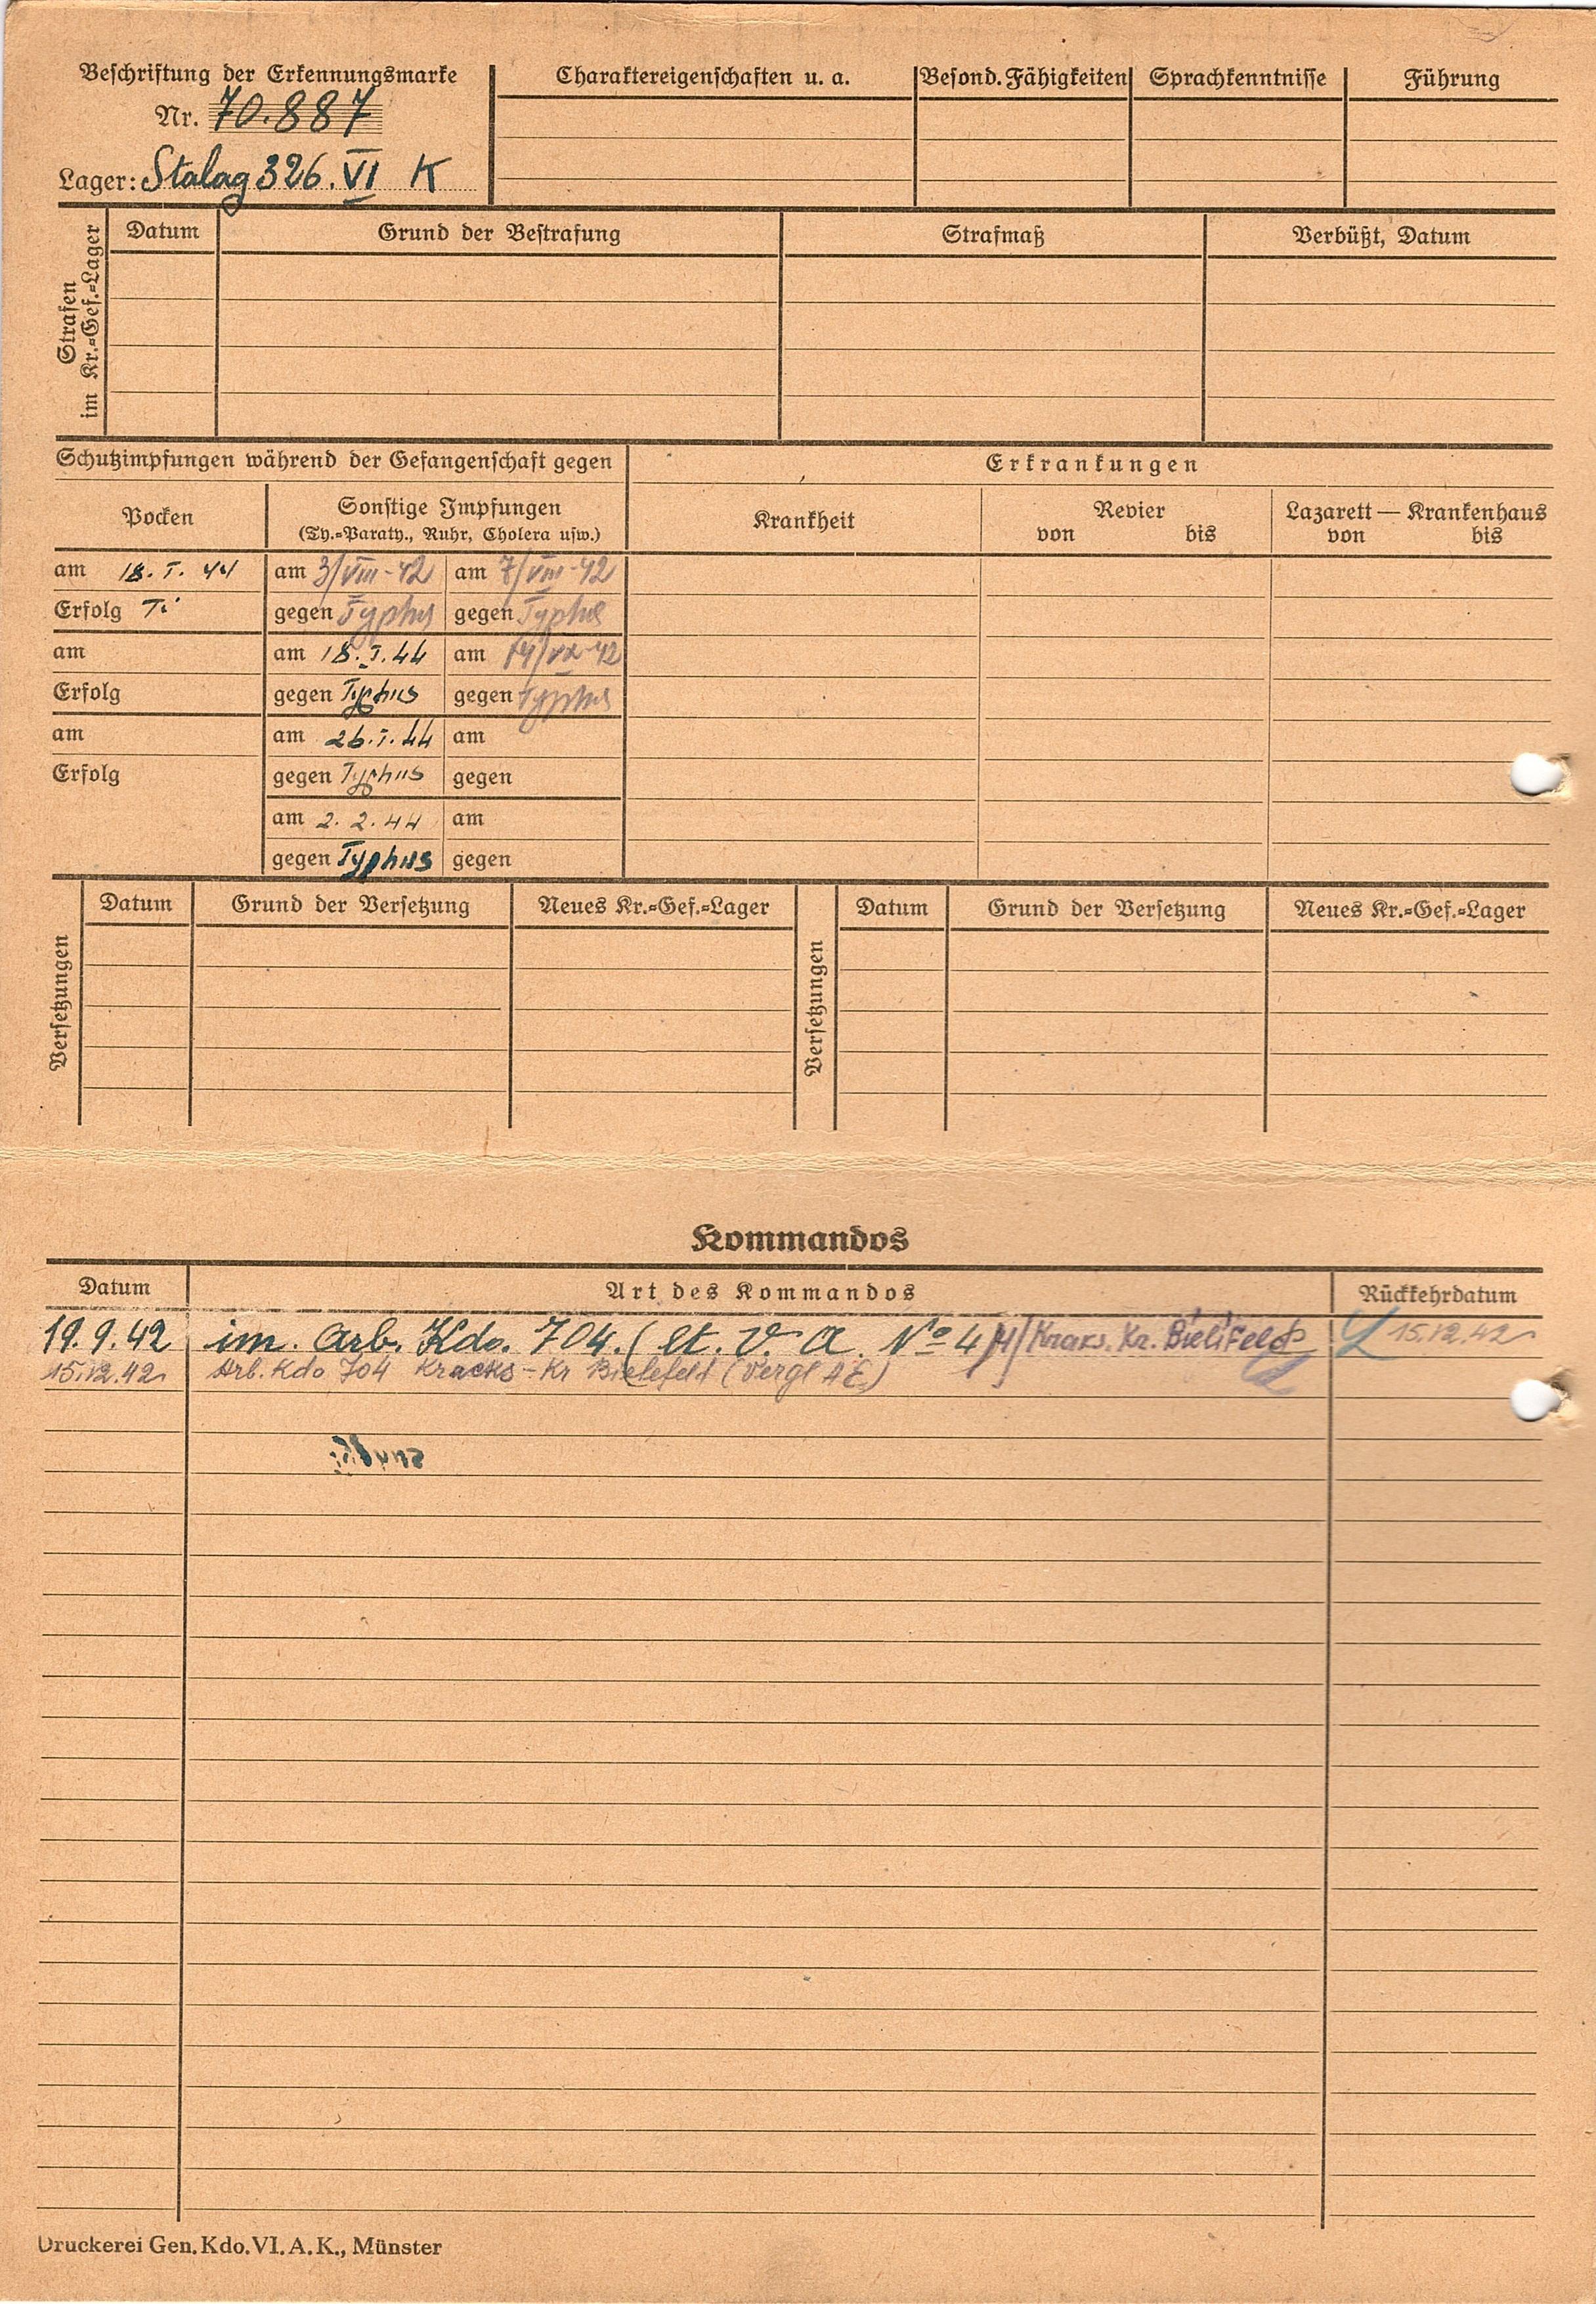 Beschriftung der Erkennungsmarke
Nr. 70.887
Lager: Stalag 326. VI K
Charaktereigenschaften u. a.
Besond. Fähigkeiten
Sprachkenntnisse
Führung
Strafen im Kr.=Gef.=Lager
Datum
Grund der Bestrafung
Strafmaß
Verbüßt, Datum
Schutzimpfungen während der Gefangenschaft gegen
Erkrankungen
Pocken
Sonstige Impfungen
(Ty.=Paraty., Ruhr, Cholera usw.)
Krankheit
Revier
von bis
Lazarett — Krankenhaus
von bis
am 18. I. 44 am 3/VIII-42 am 7/VIII-42
Erfolg gegen Typhus gegen Typhus
am am 18. I. 44 am 14/ -42
Erfolg gegen Typhus gegen Typhus
am am 26. I. 44 am
Erfolg gegen Typhus gegen
am 2. 2. 44 am
gegen Typhus gegen
Versetzungen
Datum
Grund der Versetzung
Neues Kr.=Gef.=Lager
Versetzungen
Datum
Grund der Versetzung
Neues Kr.=Gef.=Lager
Kommandos
Datum Art des Kommandos Rückkehrdatum
19.9.42 im. Arb. Kdo. 704. ( V. A. Nº 4 Kraks. Kr. Bielifeld 15.12.42
15.12.42 Arb. Kdo 704 Kracks - Kr Bielefeld (Vergl AE.)
Druckerei Gen. Kdo. VI. A. K., Münster